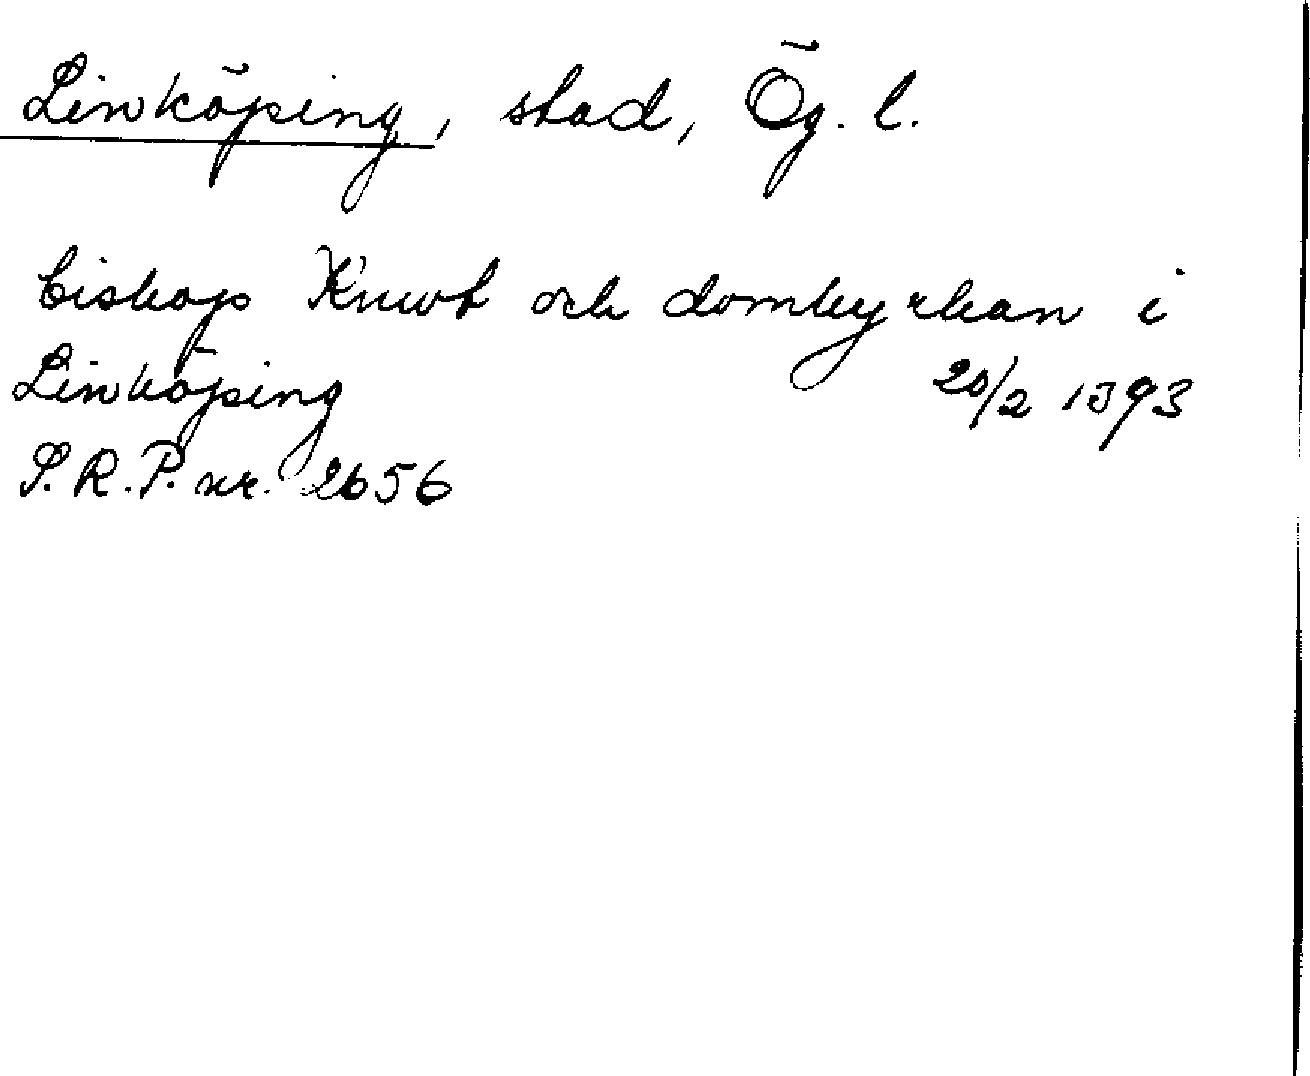 Linköping, stad, Ög. l.
biskop Knut och domkyrkan i
Linköping 20/2 1393
S.R.P. nr. 2656